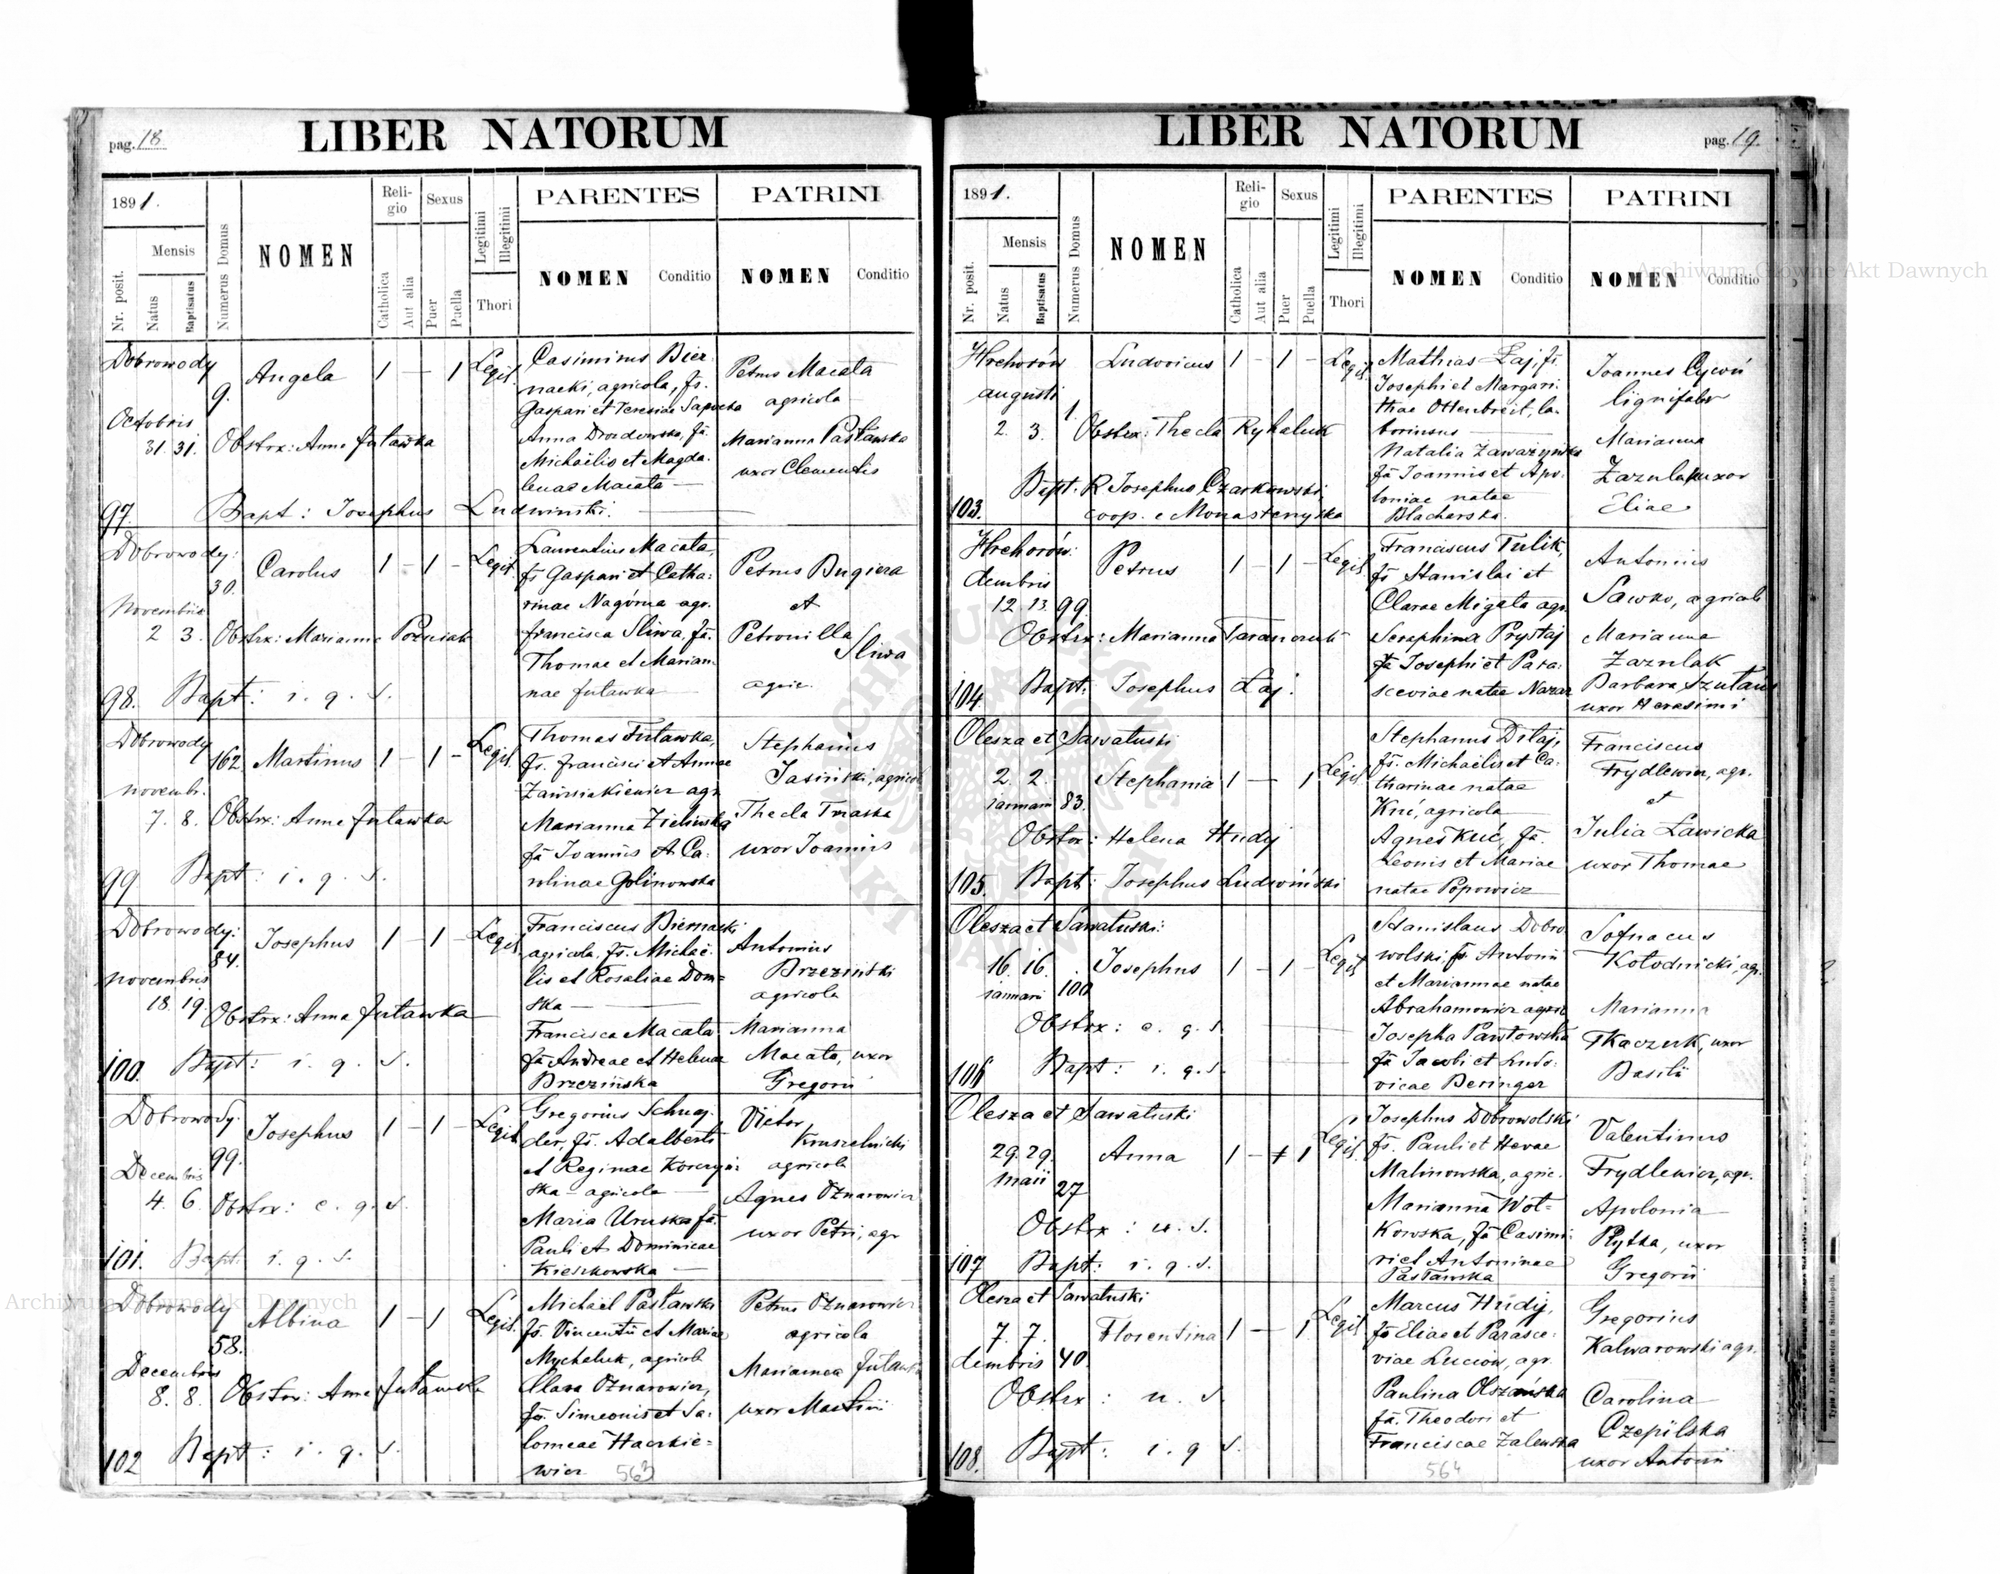 pag. 18
LIBER NATORUM
1891.
Nr. posit.
Mensis
Natus
Baptisatus
Numerus Domus
NOMEN
Religio
Catholica
Aut alia
Sexus
Puer
Puella
Legitimi
Illegitimi
Thori
PARENTES
NOMEN
Conditio
PATRINI
NOMEN
Conditio
Dobrowody
9.
Octobris
31. 31.
Angela
1 – 1
Legit.
Obstrx: Anna Jutawka
97.
Bapt: Josephus Ludwinski.
Casimirus Bier-
nacki, agricola, fs.
Gaspari et Teresiae Sapucka
Anna Drozdowska, fa.
Michaëlis et Magda-
lenae Macata
Petrus Macata
agricola
Marianna Pasławska
uxor Clementis
Dobrowody:
30.
Novembris
2 3.
Carolus
1 – 1 –
Legit.
Obstrx: Marianna Pozniak
98. Bapt: i. q. s.
Laurentius Macata,
fs Gaspari et Catha-
rinae Nagórna agr.
Francisca Sliwa, fa.
Thomae et Marian-
nae Jutawka
Petrus Bugiera
et
Petronilla
Sliwa
agric.
Dobrowody
162.
Novembr.
7. 8.
Martinus
1 – 1 –
Legit.
Obstrx: Anna Jutawka
99 Bapt: i. q. s.
Thomas Jutawka,
fs. Francisci et Annae
agr.
Marianna Zielinska
fa Joannis et Ca-
rolinae Golinowska
Stephanus
Jasiński, agricola
Thecla Traska
uxor Joannis
Dobrowody:
84.
Novembris
18. 19.
Josephus
1 – 1 –
Legit.
Obstrx: Anna Jutawka
100. Bapt: i. q. s.
Franciscus Biernacki
agricola, fs. Michaë-
lis et Rosaliae Dom-
ska
Francisca Macata
fa Andreae et Helenae
Brzezińska
Antonius
Brzeziński
agricola
Marianna
Macata, uxor
Gregorii
Dobrowody:
99.
Decembris
4. 6.
Josephus
1 – 1 –
Legit.
Obstrx: e. q. s.
101. Bapt: i. q. s.
Gregorius Schnej-
der, fs. Adalberti
et Reginae
ska – agricola
Maria Uruska fa.
Pauli et Dominicae
Kieszkowska
Victor
Kruszelnicki
agricola
Agnes Oznarowicz
uxor Petri, agr
Dobrowody
58.
Decembris
8. 8.
Albina
1 – 1
Legit.
Obstrx: Anna Jutawka
102 Bapt: i. q. s.
Michaël Pasławski
fs. Vincentii et Mariae
Mycheluk, agricola
Clara Oznarowicz,
fa. Simeonis et Sa-
lomeae Hackie-
wicz
Petrus Oznarowicz
agricola
Marianna Jutawka
uxor Martini
563
pag. 19.
LIBER NATORUM
1891.
Nr. posit.
Mensis
Natus
Baptisatus
Numerus Domus
NOMEN
Religio
Catholica
Aut alia
Sexus
Puer
Puella
Legitimi
Illegitimi
Thori
PARENTES
NOMEN
Conditio
PATRINI
NOMEN
Conditio
Hrehorów
augusti
1.
2. 3.
Ludovicus
1 – 1 –
Legit.
Obstrx: Thecla Rykaluk
Bapt. R Josephus Czarkowski,
103. coop. e Monasterzyska
Mathias Łaj, fs.
Josephi et Margari-
thae Ottenbreit, la-
boriosus
Natalia Zawarzyńska
fa Joannis et Apo-
loniae natae
Blacharska.
Joannes Cycoń
lignifaber
Marianna
Zazulak uxor
Eliae
Hrehorów:
12. 13. 99
Petrus
1 – 1 –
Legit.
Obstrx: Marianna Taranczuk
104. Bapt. Josephus Łaj.
Franciscus Tulik,
fs Stanislai et
Clarae Migała agr.
Seraphina Prystaj
fa Josephi et Para-
sceviae natae Nazar
Antonius
Sawko, agricola
Marianna
Zazulak
Barbara
uxor Herasimi
Olesza et Sawałuski
2. 2.
januarii 83.
Stephania
1 – 1
Legit.
Obstrx: Helena Hudy
105. Bapt: Josephus Ludwiński
Stephanus Ditaj,
fs. Michaëlis et Ca-
tharinae natae
Kuć, agricola
Agnes Kuć, fa.
Leonis et Mariae
natae Popowicz
Franciscus
Frydlewicz, agr.
et
Julia Ławicka
uxor Thomae
Olesza et Sawałuski:
16. 16.
januarii 100
Josephus
1 – 1 –
Legit.
Obstrx: e. q. s.
106 Bapt: i. q. s.
Stanislaus Dobro-
wolski, fs Antonii
et Mariannae natae
Abrahamowicz agric
Josepha Pawłowska
fa Jacobi et Ludo-
vicae Beringer
Kołodnicki, agr.
Marianna
Tkaczuk, uxor
Basilii
Olesza et Sawałuski
29. 29.
maii 27
Anna
1 – 1
Legit.
Obstrx: u. s.
107 Bapt: i. q. s.
Josephus Dobrowolski
fs. Pauli et Hevae
Malinowska, agric.
Marianna Woł-
kowska, fa Casimi-
ri et Antoninae
Pasławska
Valentinus
Frydlewicz, agr.
Apolonia
Rytka, uxor
Gregorii
Olesza et Sawałuski
7. 7.
40.
Florentina
1 – 1
Legit.
Obstrx: u. s.
108. Bapt: i. q. s.
Marcus Hudij,
fs Eliae et Parasce-
viae Luciow, agr.
Paulina Olszańska
fa. Theodori et
Franciscae Zaleuska
Gregorius
Kalwarowski agr.
Carolina
Czepilska
uxor Antonii
564
Typis J. Dankiewicz in Stanislaopoli.
Archiwum Główne Akt Dawnych
Archiwum Główne Akt Dawnych
ARCHIWUM GŁÓWNE AKT DAWNYCH